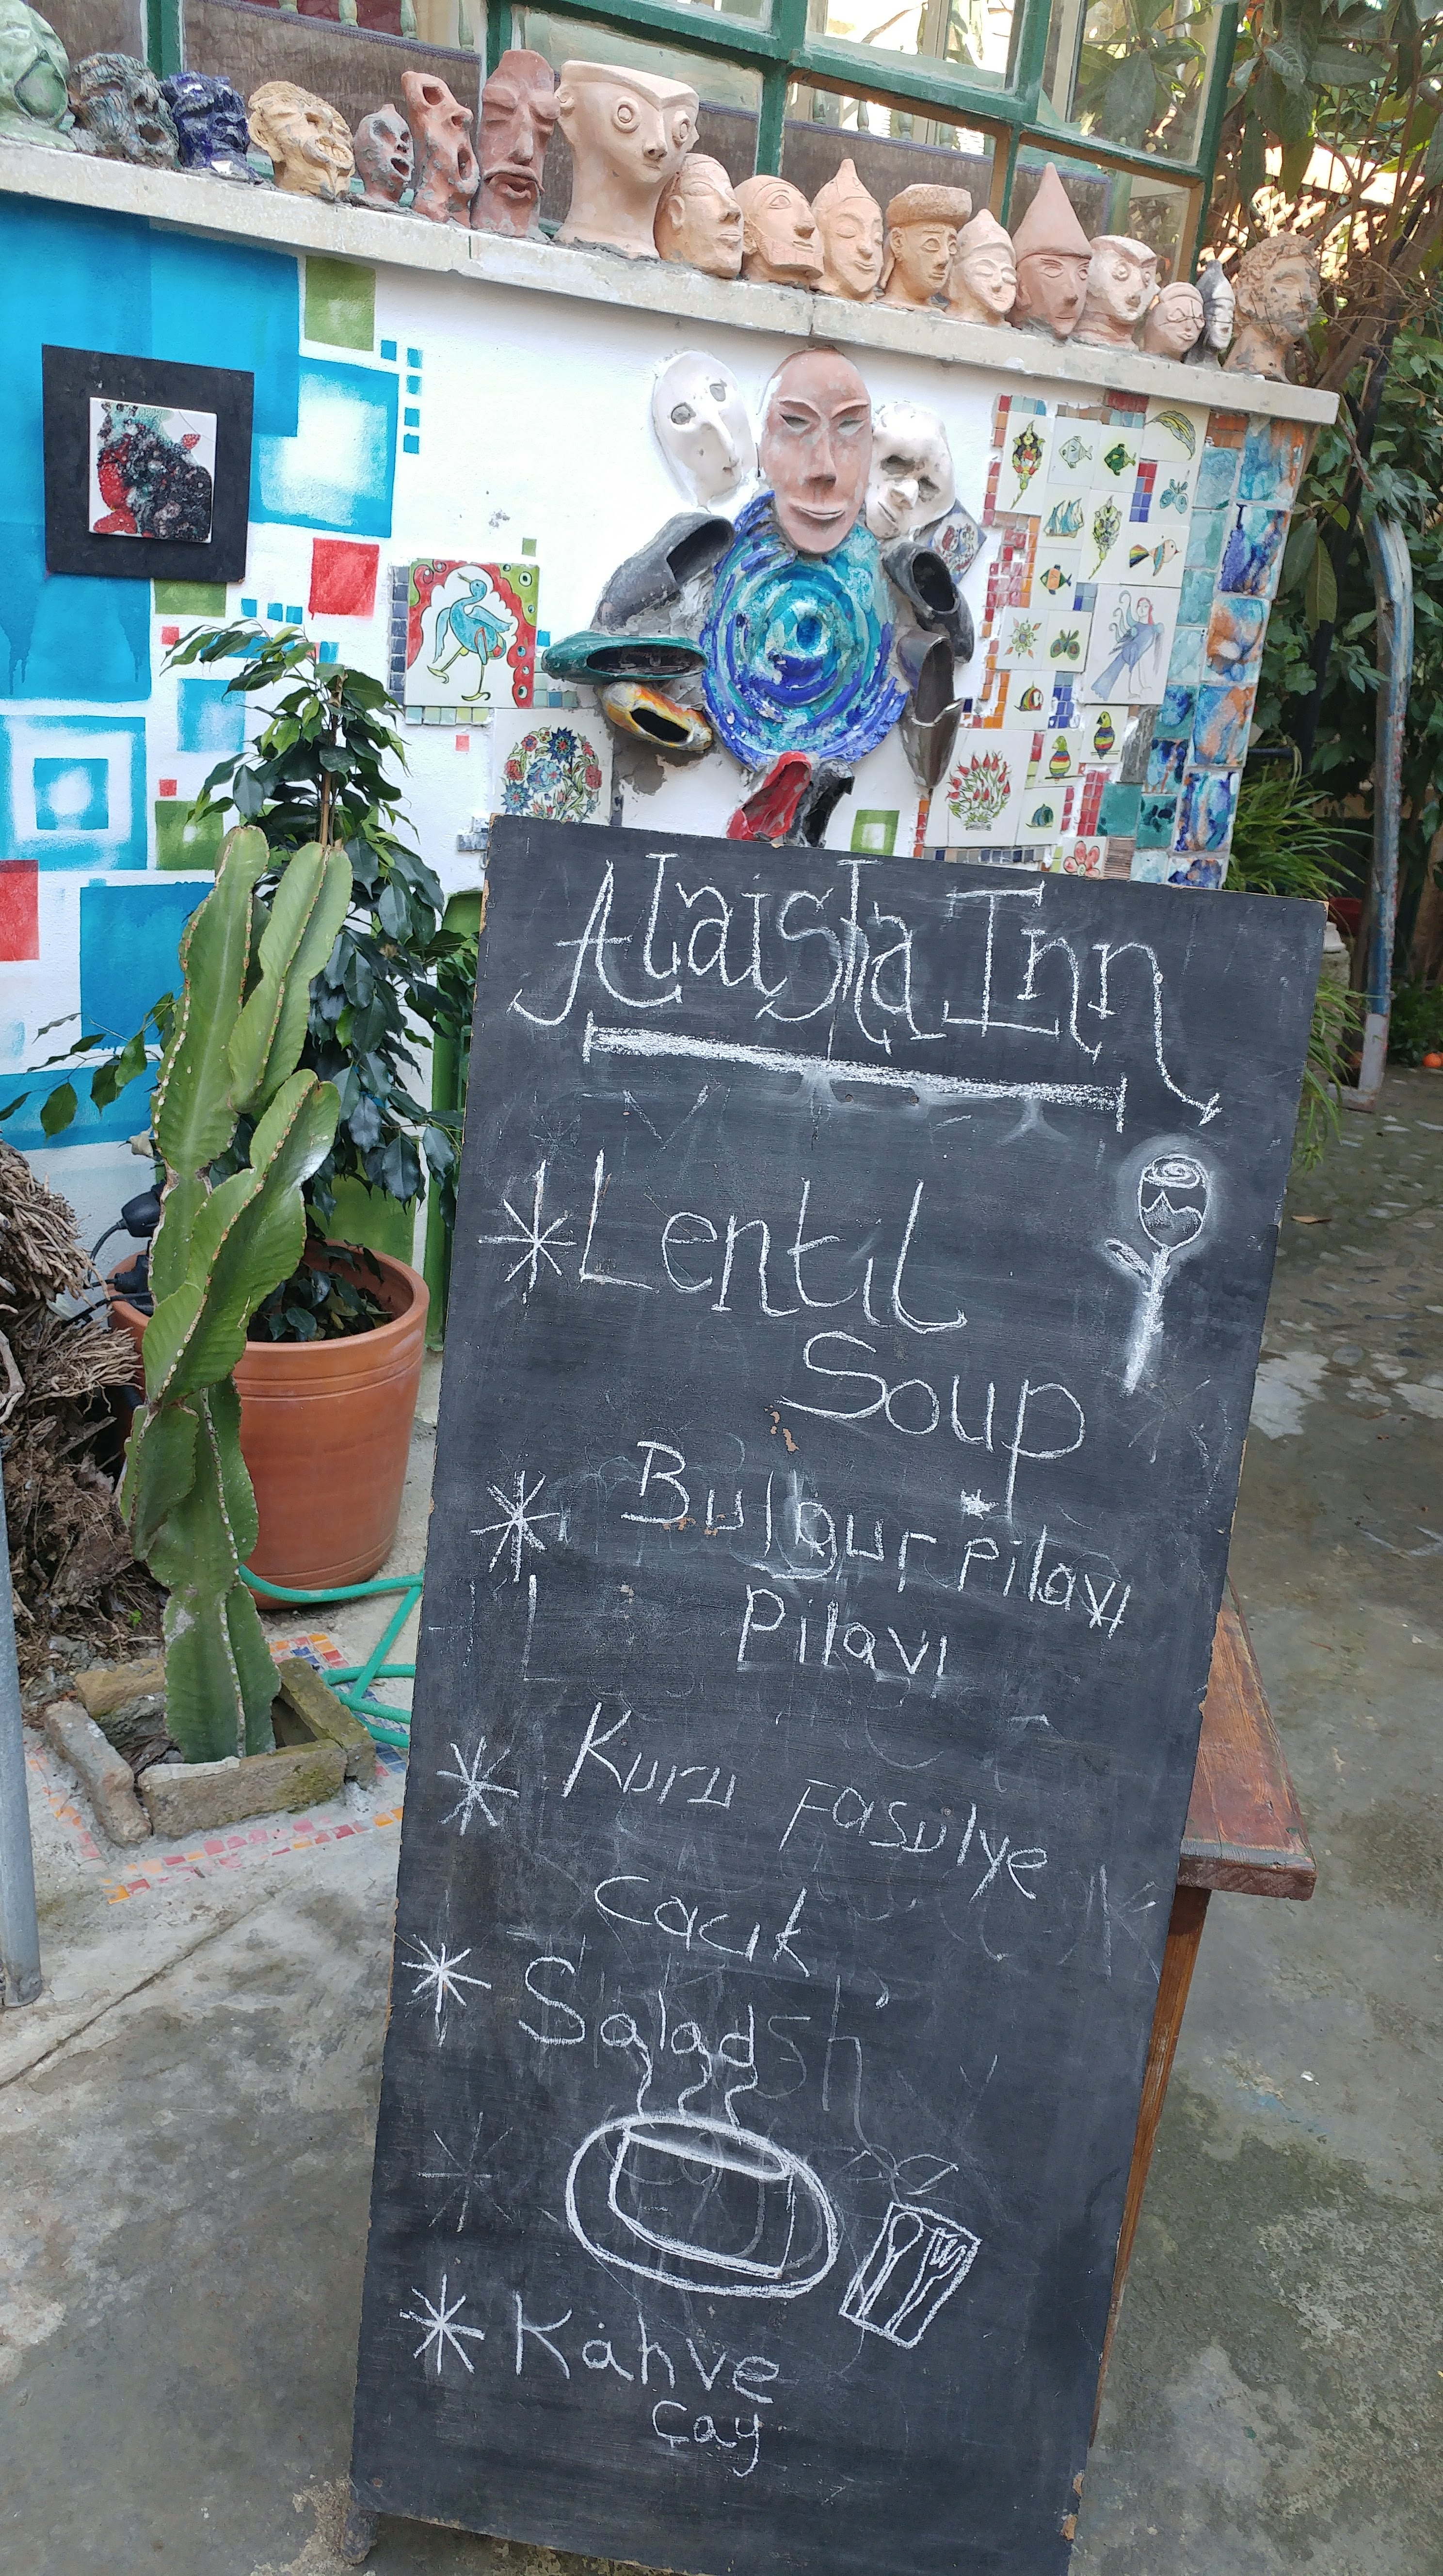 Ataişta Inn
* Lentil
Soup
* Bulgur Pilavı
Pilavı
* Kuru Fasulye
Cacık
* Salad
* Kahve
Çay